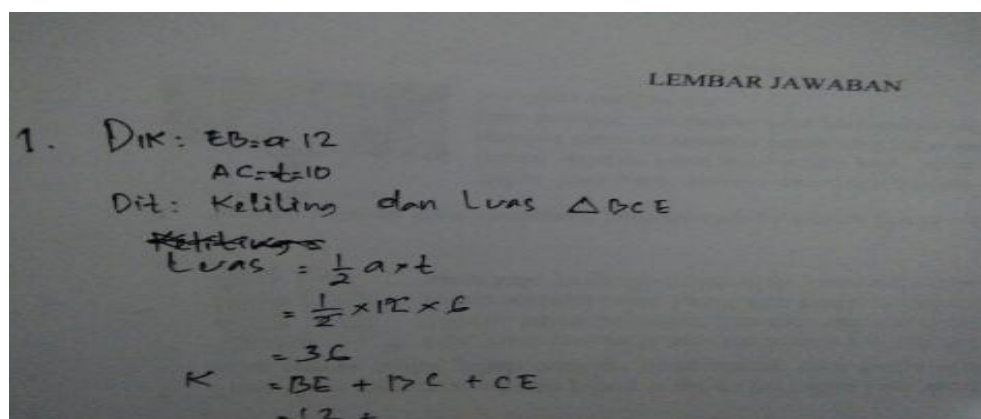 LEMBAR JAWABAN
1. Dik: EB=a 12
AC=t=10
Dit: Keliling dan Luas △BCE
Luas = 1/2 a×t
= 1/2 ×12 × 6
= 36
K = BE + BC + CE
= 12 +